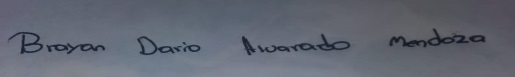 Brayan Dario Alvarado Mendoza